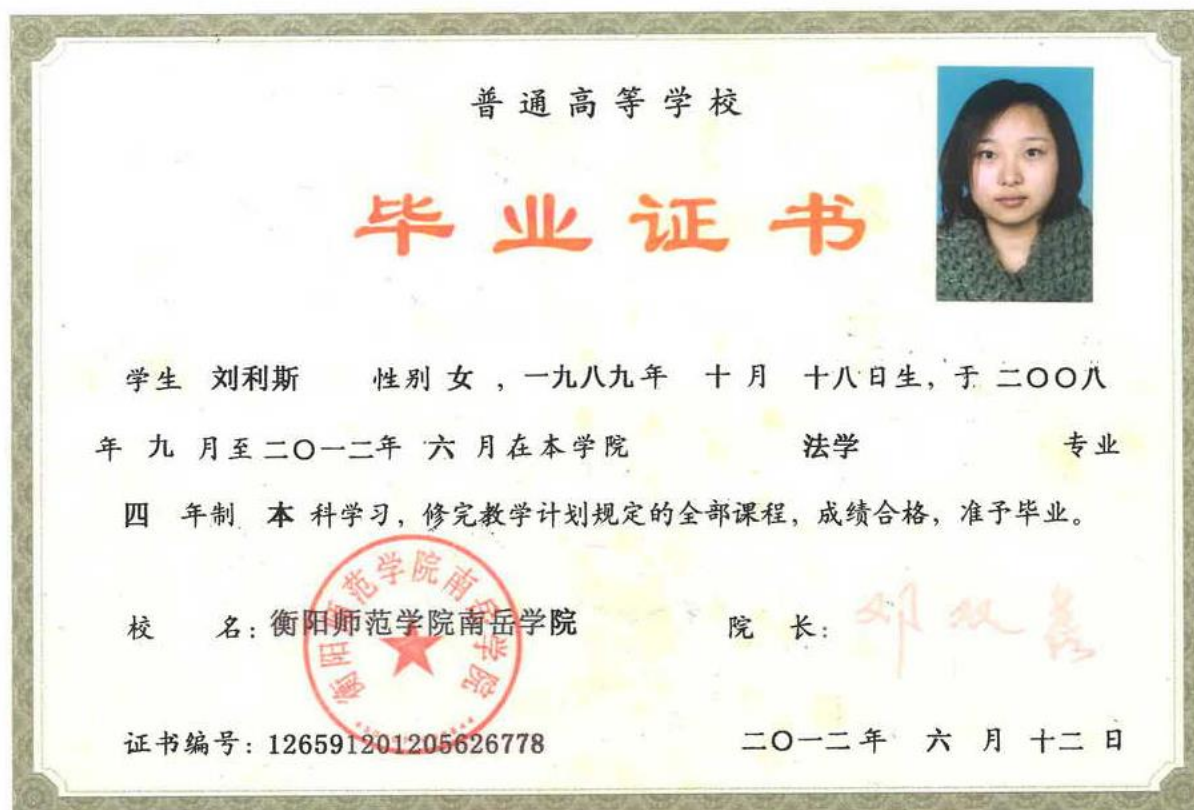 普通高等学校
毕业证书
学生 刘利斯 性别 女 ，一九八九年 十 月 十八日生，于 二〇〇八
年 九 月至二〇一二年 六 月在本学院 法学 专业
四 年制 本 科学习，修完教学计划规定的全部课程，成绩合格，准予毕业。
衡阳师范学院南岳学院
校 名：衡阳师范学院南岳学院 院 长：邓双喜
证书编号：126591201205626778 二〇一二年 六 月 十二 日